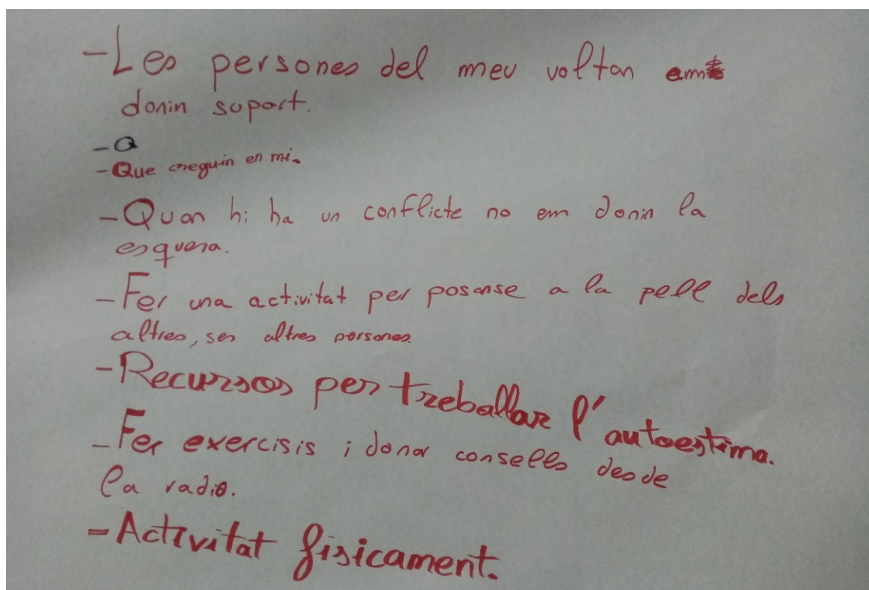 -Les persones del meu voltan em
donin suport.
-Q
-Que creguin en mi.
-Quan hi ha un conflicte no em donin la
esquena.
-Fer una activitat per posanse a la pell dels
altres, ser altres persones.
-Recursos per treballar l'autoestima.
-Fer exercisis i donar consells desde
la radio.
-Activitat físicament.